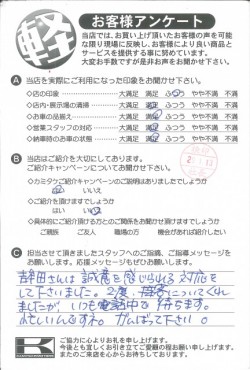 軽
お客様アンケート
当店では、お買い上げ頂いたお客様の声を可能
な限り現場に反映し、お客様により良い商品と
サービスを提供する事に努めています。
大変お手数ですが是非お声をお聞かせ下さい。
A 当店を実際にご利用になった印象をお聞かせ下さい。
◇店の印象 大満足 満足 ふつう やや不満 不満
◇店内・展示場の清掃 大満足 満足 ふつう やや不満 不満
◇お車の品揃え 大満足 満足 ふつう やや不満 不満
◇営業スタッフの対応 大満足 満足 ふつう やや不満 不満
◇納車時のお車の状態 大満足 満足 ふつう やや不満 不満
B 当店はご紹介を大切にしております。
ご紹介キャンペーンについてお聞かせ下さい。
◇カミタケご紹介キャンペーンのご説明はありましたでしょうか
はい いいえ
◇ご紹介を頂けますでしょうか
はい いいえ
◇具体的にご紹介頂ける方とのご関係をお聞かせ頂けますでしょうか
ご親族 ご友人 職場の方 機会があれば紹介したい
C 担当させて頂きましたスタッフへのご指摘、ご指導メッセージを
お願いします。応援メッセージもぜひお願いします。
さんは 誠意を感じられる 対応を
して下さいました。
ましたが、いつも電話中で 待ちます。
がんばって下さい。
ご協力に心よりお礼を申し上げます。
今後とも宜しくお引き立てご愛顧の程お願い申し上げます。
またのご来店を心からお待ちしております。